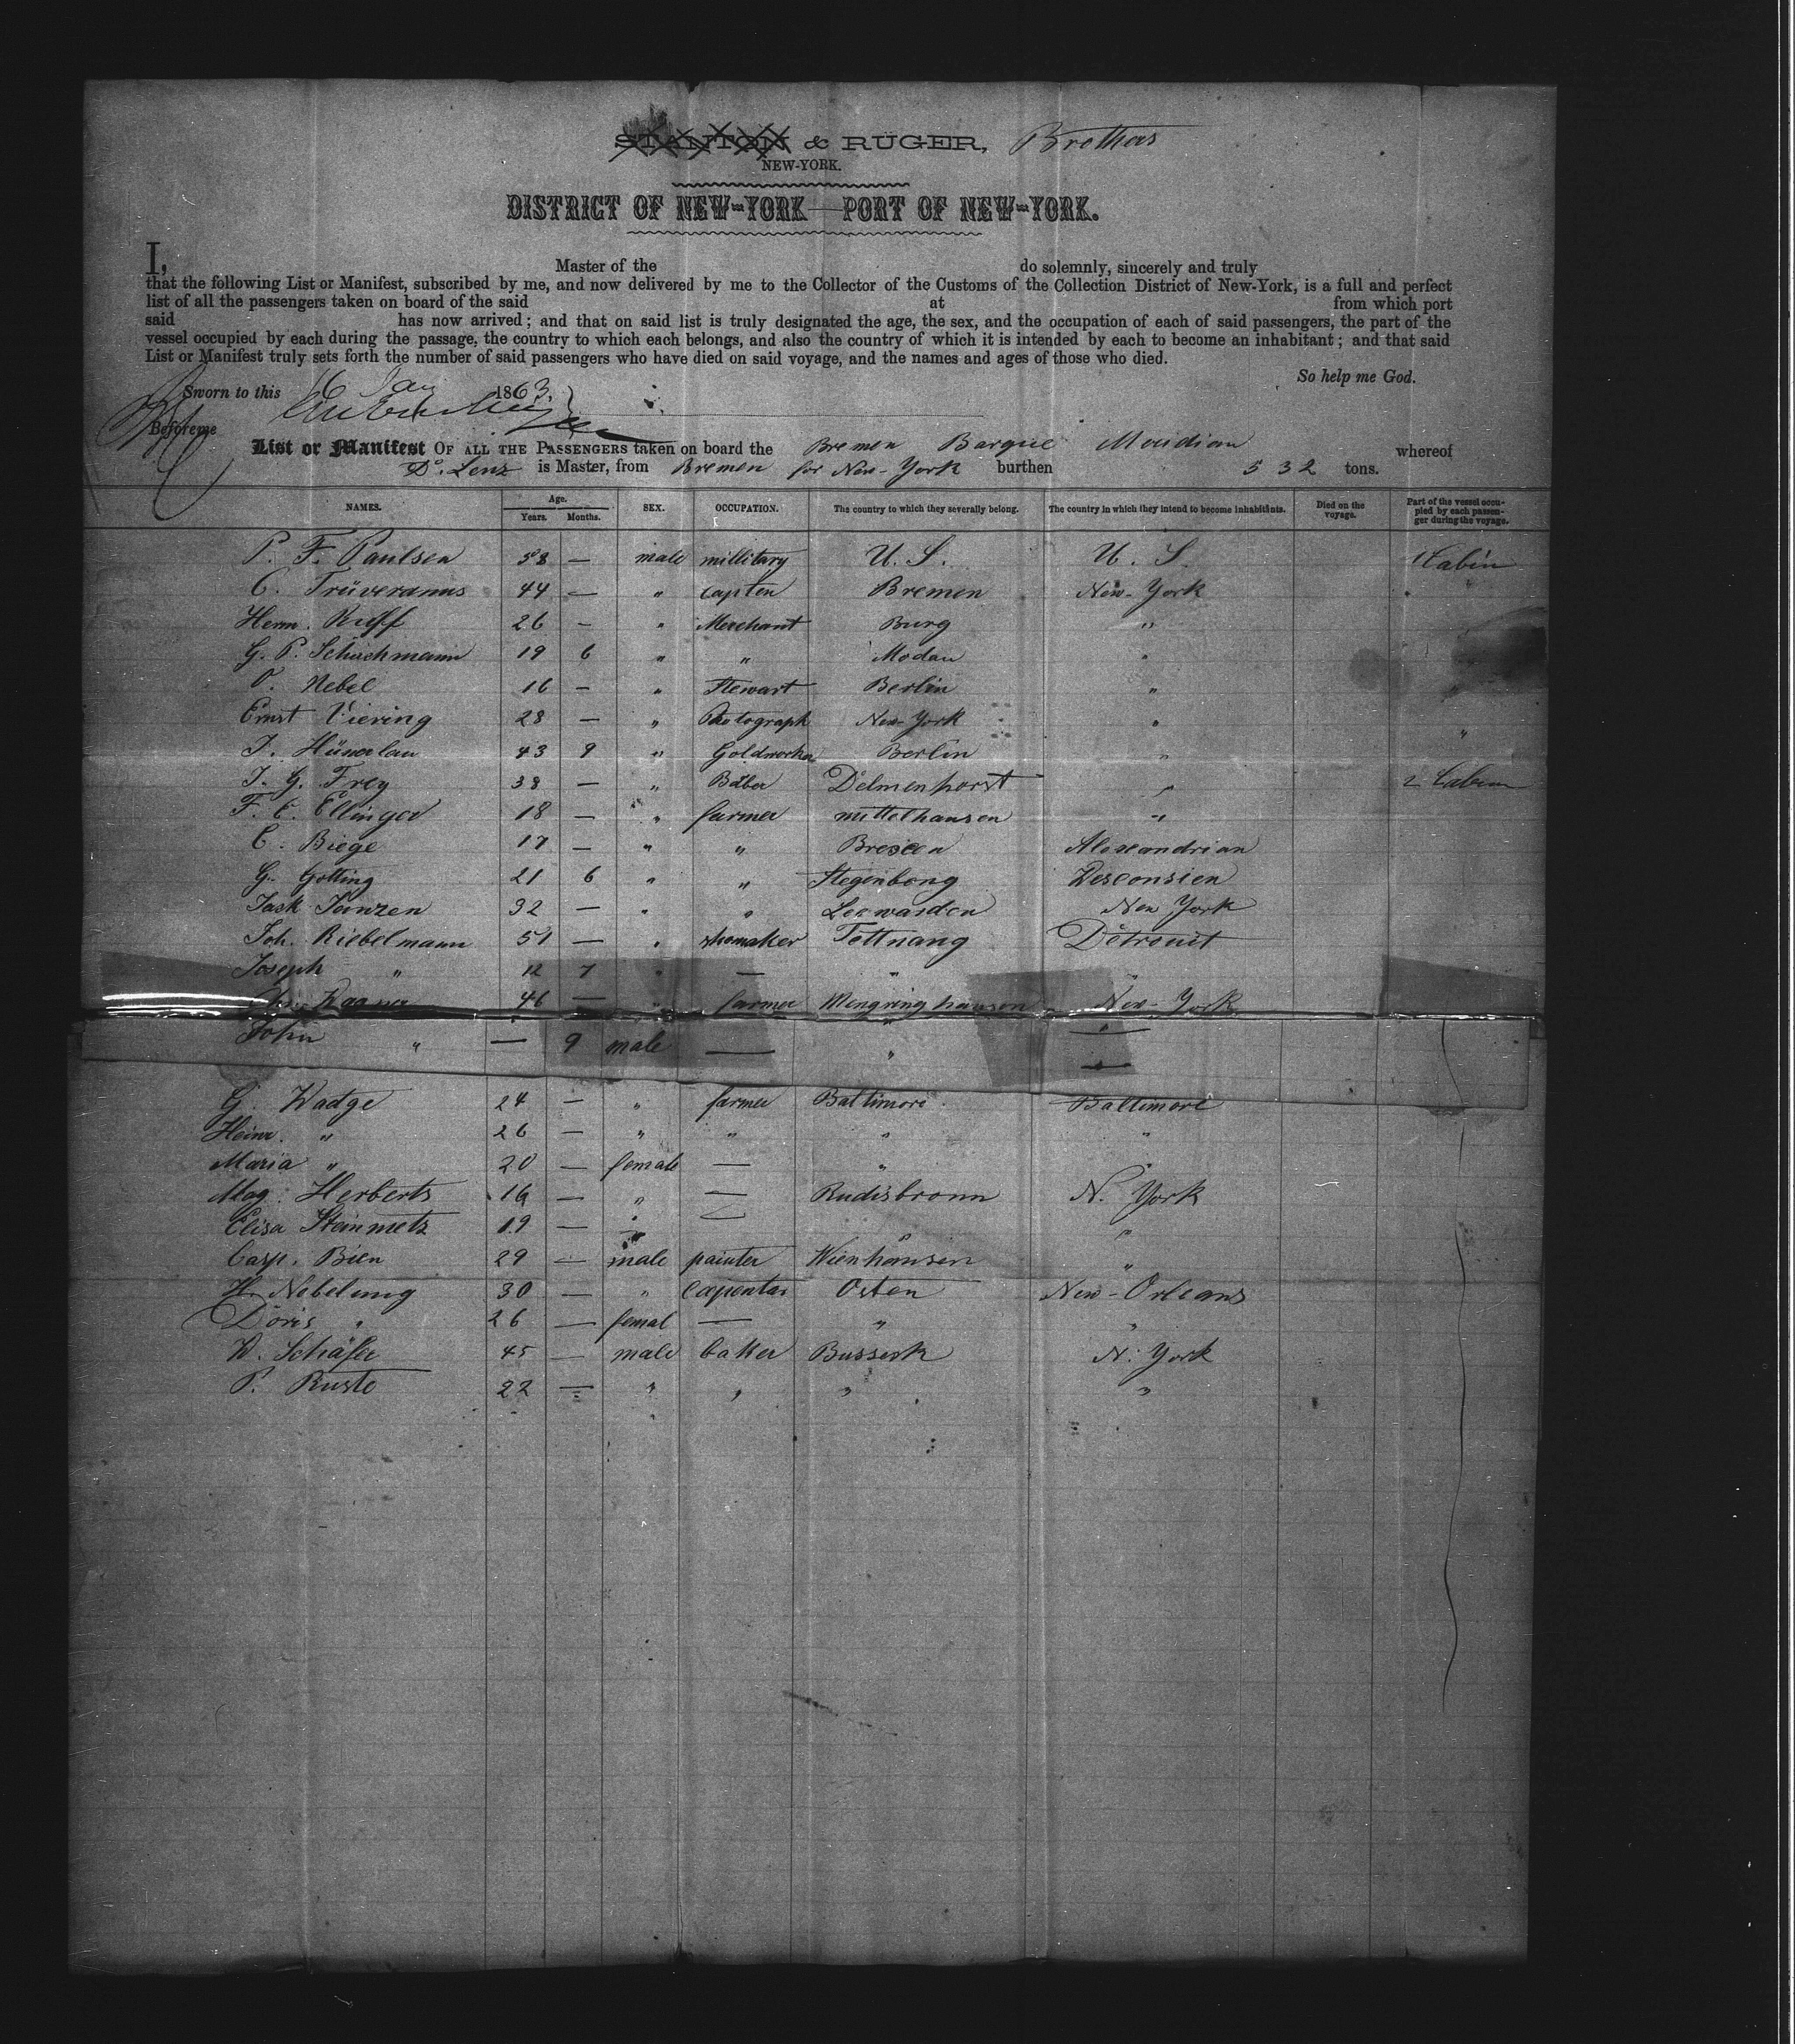 STANTON & RUGER, Brothers
NEW-YORK.
DISTRICT OF NEW-YORK—PORT OF NEW-YORK.
I, Master of the do solemnly, sincerely and truly
that the following List or Manifest, subscribed by me, and now delivered by me to the Collector of the Customs of the Collection District of New-York, is a full and perfect
list of all the passengers taken on board of the said at from which port
said has now arrived; and that on said list is truly designated the age, the sex, and the occupation of each of said passengers, the part of the
vessel occupied by each during the passage, the country to which each belongs, and also the country of which it is intended by each to become an inhabitant; and that said
List or Manifest truly sets forth the number of said passengers who have died on said voyage, and the names and ages of those who died.
So help me God.
Sworn to this 16 Jan 1863.
Before me
List or Manifest OF ALL THE PASSENGERS taken on board the Bremen Barque Meridian whereof
D. Lenz is Master, from Bremen for New-York burthen 532 tons.
NAMES. Age. Years. Months. SEX. OCCUPATION. The country to which they severally belong. The country in which they intend to become inhabitants. Died on the voyage. Part of the vessel occupied by each passenger during the voyage.
P. F. Paulsen 58 — male millitary U. S. U. S. 1 Cabin
C. Trüveranus 44 — " capten Bremen New-York "
Herm. Ruff 26 — " Merchant Burg "
G. P. Schuchmann 19 6 " " Modau "
O. Nebel 16 — " Stewart Berlin " "
Ernst Viering 28 — " Photograph New-York " "
J. 43 9 " Goldworker Berlin "
J. G. Frey 38 — " Delmenhorst " 2 Cabin
F. C. Ellinger 18 — " farmer mittelhausen "
C. Biege 17 — " " Alexandrian
G. Gotting 21 6 " " Stegenbong Wesconsien
Jack Janzen 32 — " " Leewarden New York
Joh. Riebelmann 51 — " shomaker Tettnang Detrouit
Joseph " 12 7 " — " "
Wagner 46 — " farmer Mengringhausen New-York
John " — 9 male — " "
G. Wadge 24 — " farmer Baltimore Baltimore
Heinr. " 26 — " " " "
Maria " 20 — female — " "
Mag. Herberts 16 — " — Rudisbronn N. York
Elisa Steinmetz 19 — " — "
Casp. Bien 29 — male painter Wienhausen "
H. Nobelung 30 — " Capentar Osten New-Orleans
Doris " 26 — femal — " "
W. Schäfer 45 — male baker Busseck N. York
P. Ruste 22 — " " " "